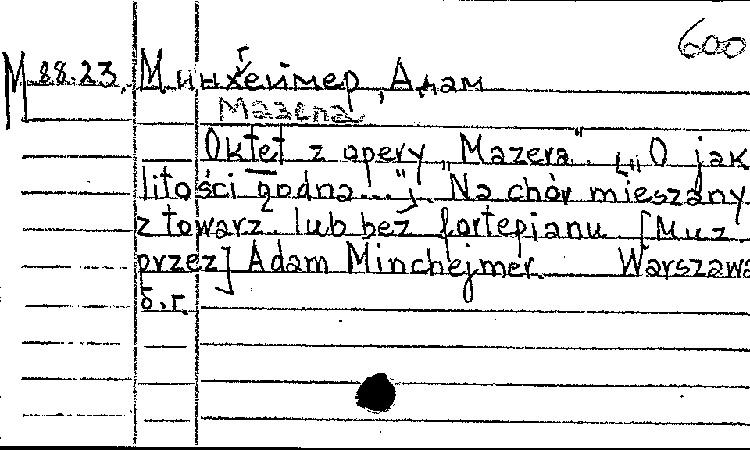 600
M 88.23. Минхеймер, Адам
г
Мазепа
Oktet z opery „Mazepa". [„O jak
litości godna..."]. Na chór mieszany
z towarz. lub bez fortepianu [Muz.
przez] Adam Minchejmer. Warszawa
b.r.